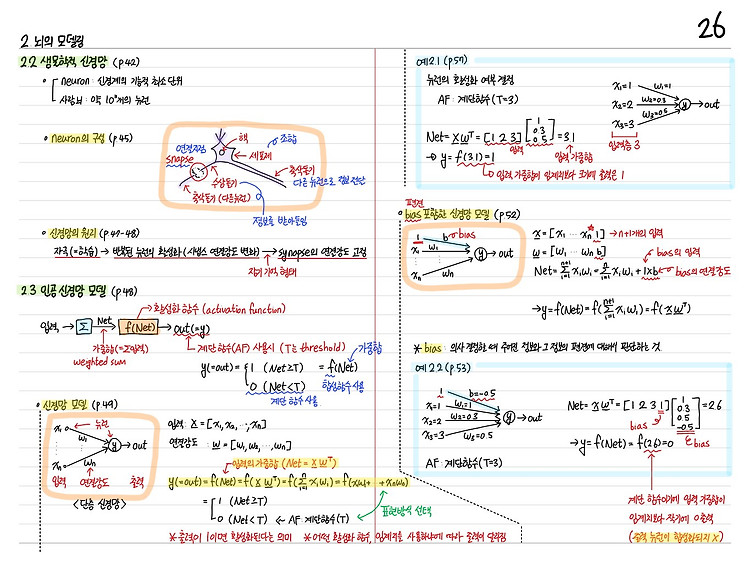 26
2 뇌의 모델링
2.2 생물학적 신경망 (p.42)
neuron : 신경계의 기능적 최소 단위
사람뇌 : 약 10¹¹개의 뉴런
neuron의 구성 (p.45)
핵
조합
연결지점
snapse
세포체
축삭돌기
다른 뉴런으로 정보 전달
수상돌기
축삭돌기 (다른뉴런)
정보를 받아들임
신경망의 원리 (p.47-48)
자극(=학습) → 반복된 뉴런의 활성화 (시냅스 연결강도 변화) → synapse의 연결강도 고정
장기 기억 형태
2.3 인공 신경망 모델 (p.48)
활성화 함수 (activation function)
입력 → Σ Net → f(Net) → out(=y)
가중합(=조입력)
weighted sum
계단함수(AF) 사용시 (T는 threshold)
가중합
y(=out) = 1 (Net≥T) = f(Net)
0 (Net<T) 활성함수 사용
계단 함수 사용
신경망 모델 (p.49)
x₁ 뉴런
w₁ y → out
xₙ wₙ
입력 연결강도 출력
<단층 신경망>
입력 : X = [x₁, x₂, ⋯, xₙ]
연결강도 : w = [w₁, w₂, ⋯, wₙ]
입력의 가중합 (Net = X wᵀ)
y(=out) = f(Net) = f(X wᵀ) = f(Σ xᵢwᵢ) = f(x₁w₁+ +xₙwₙ)
= 1 (Net≥T)
0 (Net<T) ← AF:계단함수(T)
표현방식 선택
*출력이 1이면 활성화된다는 의미 *어떤 활성화 함수, 임계치를 사용하냐에 따라 출력이 달라짐
예2.1 (p.51)
뉴런의 활성화 여부 결정
AF : 계단함수(T=3)
x₁=1 w₁=1
x₂=2 w₂=0.3 y → out
x₃=3 w₃=0.5
입력층 3
Net = X wᵀ = [1 2 3] [1 0.3 0.5] = 3.1
입력 입력 가중합
→ y = f(3.1) = 1
입력 가중합이 임계치보다 크기에 출력은 1
편견
bias 포함한 신경망 모델 (p.52)
1 b bias
x₁ w₁ y → out
xₙ wₙ
x = [x₁ ⋯ xₙ 1] → n+1개의 입력
w = [w₁ ⋯ wₙ b] bias의 입력
Net = Σ xᵢwᵢ = Σ xᵢwᵢ + 1×b bias의 연결강도
→ y = f(Net) = f(Σ xᵢwᵢ) = f(x wᵀ)
* bias : 의사 결정할 때 주어진 정보와 그 정보의 편견에 대해서 판단하는 것
예2.2 (p.53)
1 b=-0.5
x₁=1 w₁=1
x₂=2 w₂=0.3 y → out
x₃=3 w₃=0.5
AF : 계단함수(T=3)
Net = X wᵀ = [1 2 3 1] [1 0.3 0.5 -0.5] = 2.6
bias bias
→ y = f(Net) = f(2.6) = 0
계단 함수이기에 입력 가중합이
임계치보다 작기에 0출력
(출력 뉴런이 활성화되지 X)